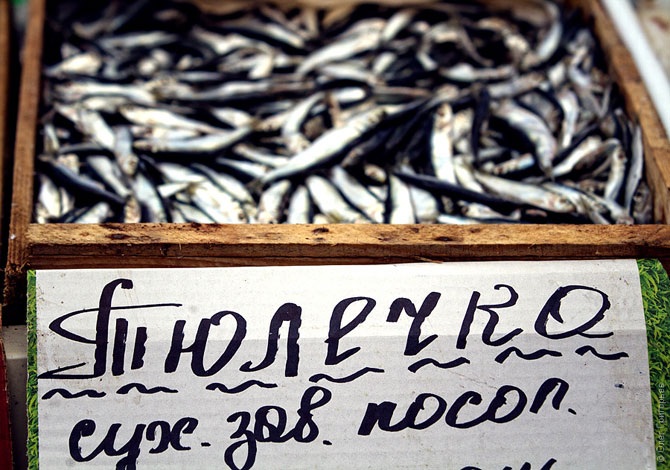 Тюлечко
сух. зав. посол.